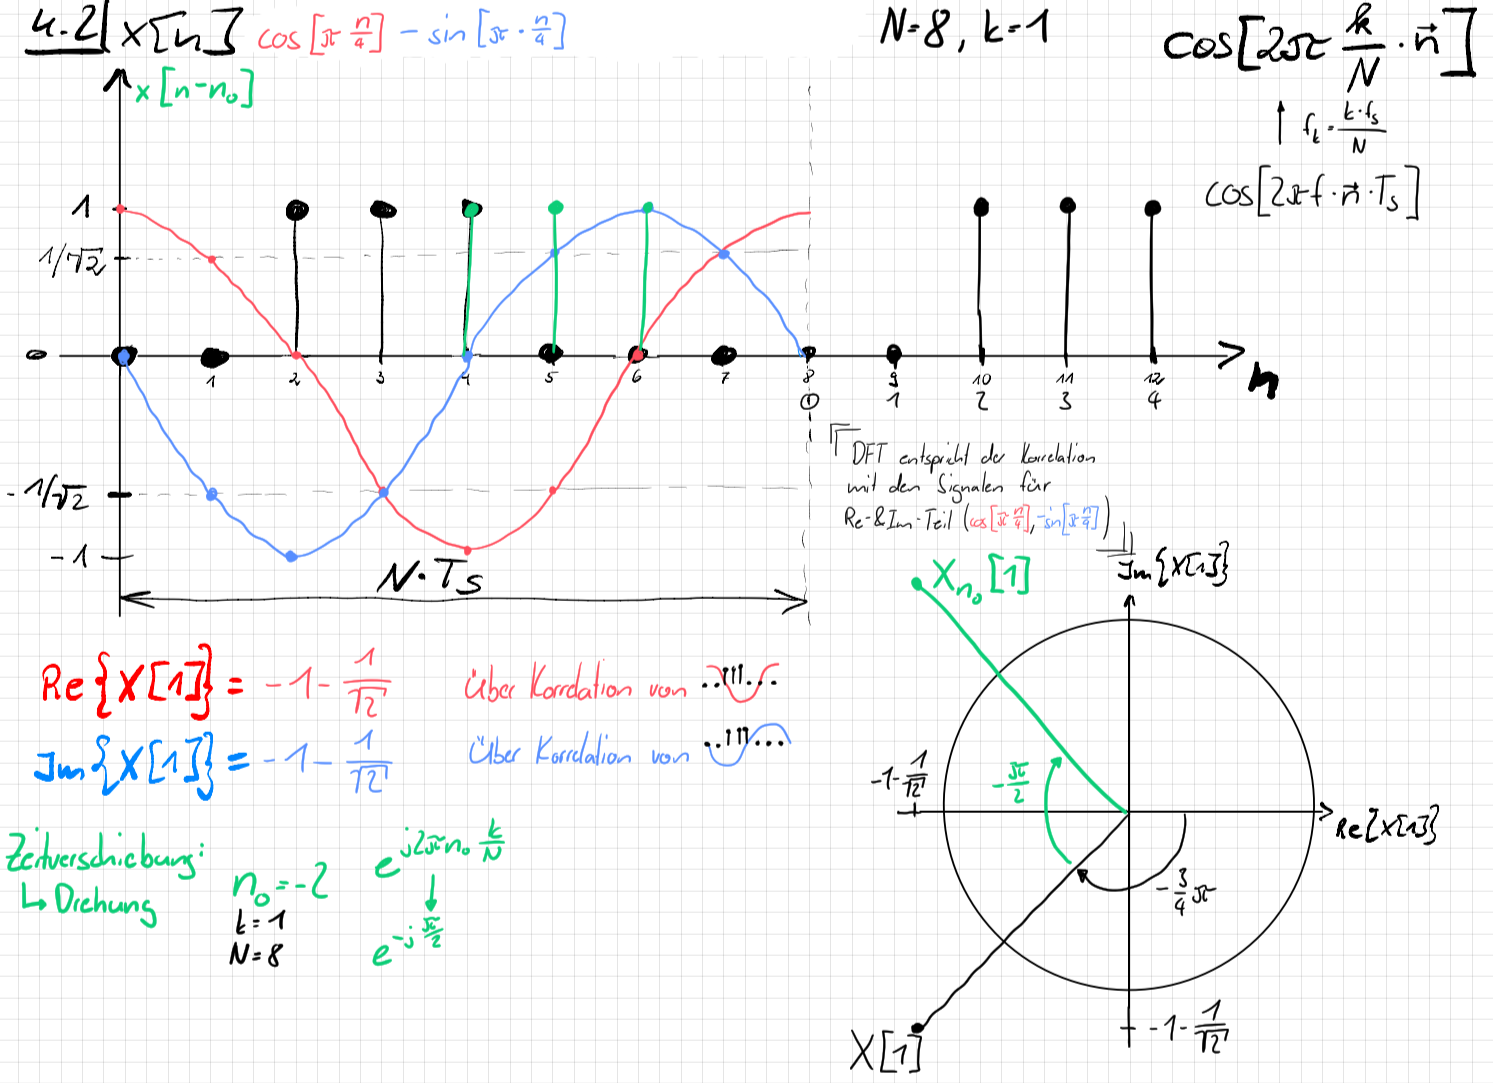 4.2 x[n] cos[π n/4] - sin[π · n/4]
N=8, k=1
cos[2π k/N · n⃗]
x[n-n₀]
↑ fₖ = k·fₛ/N
cos[2πf · n⃗ · Tₛ]
1
1/√2
0
1 2 3 4 5 6 7 8 9 10 11 12
0 1 2 3 4
n
-1/√2
-1
N·Tₛ
DFT entspricht der Korrelation
mit den Signalen für
Re-&Im-Teil (cos[π n/4], -sin[π n/4])
Xₙ₀[1]
Im{X[1]}
Re{X[1]} = -1 - 1/√2 über Korrelation von
Im{X[1]} = -1 - 1/√2 über Korrelation von
-1-1/√2
-π/2
Re{X[1]}
-3/4 π
Zeitverschiebung:
↳ Drehung
n₀=-2
k=1
N=8
e^(j2πn₀ k/N)
↓
e^(-j π/2)
X[1]
-1-1/√2